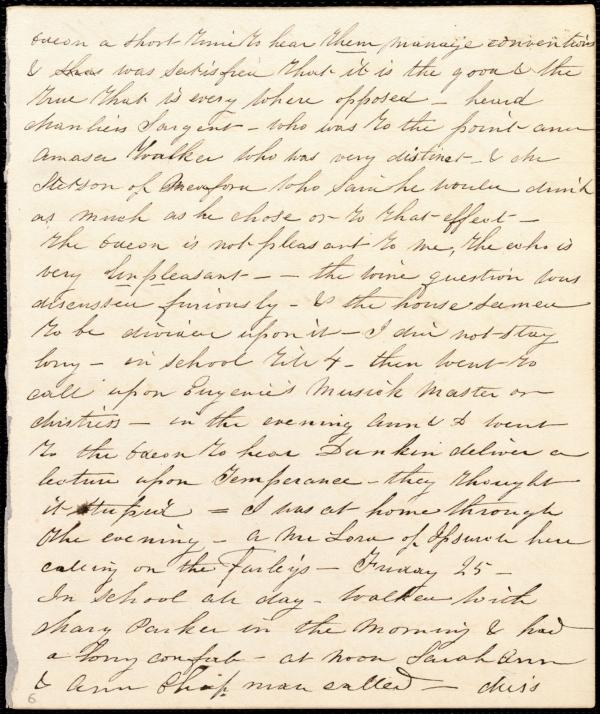 Odeon a short time to hear them manage conventions
& was satisfied that it is the good & the
true that is every where opposed - heard
Charlies Sargent - who was to the point and
Amasa Walker who was very distinct - & Mr
Stetson of Medford who said he would drink
as much as he chose or to that effect -
The Odeon is not pleasant to me, the echo is
very unpleasant - - the wine question was
discussed furiously - & the house seemed
to be divided upon it - I did not stay
long - in school till 4 - then went to
call upon Eugenie's Musick Master or
Mistress - in the evening Ann & D went
to the Odeon to hear Dunkin deliver a
lecture upon Temperance - they thought
it stupid = I was at home through
the evening - a Mr Lord of Ipswich here
calling on the Farleys - Friday 25 -
In school all day - Walked with
Mary Parker in the morning & had
a long confab - at noon Sarah Ann
& Ann Chapman called - Miss
6